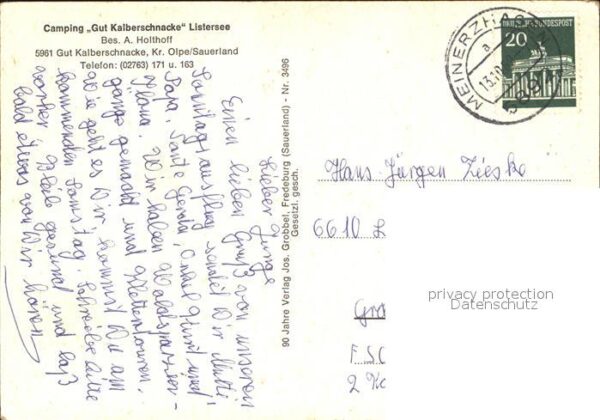 Camping „Gut Kalberschnacke“ Listersee
Bes. A. Holthoff
5961 Gut Kalberschnacke, Kr. Olpe/Sauerland
Telefon: (02763) 171 u. 163
Lieber Junge
Einen lieben Gruß von unserem
Sonntagsausflug sendet Dir Mutti
Papa, Tante Gerda, Onkel Kurt und
Oma. Wir haben Waldspazier-
gänge gemacht und Klettertouren.
Wie geht es Dir, kommst Du am
kommenden Samstag. Schreibe bitte
vorher. Bleib gesund und laß
bald etwas von Dir hören
90 Jahre Verlag Jos. Grobbel, Fredeburg (Sauerland) - Nr. 3496
Gesetzl. gesch.
MEINERZHAGEN
a
13.10
588
DEUTSCHE BUNDESPOST
20
Hans Jürgen Zieske
6610 L
privacy protection
Datenschutz
Gra
F SC
2 Ko